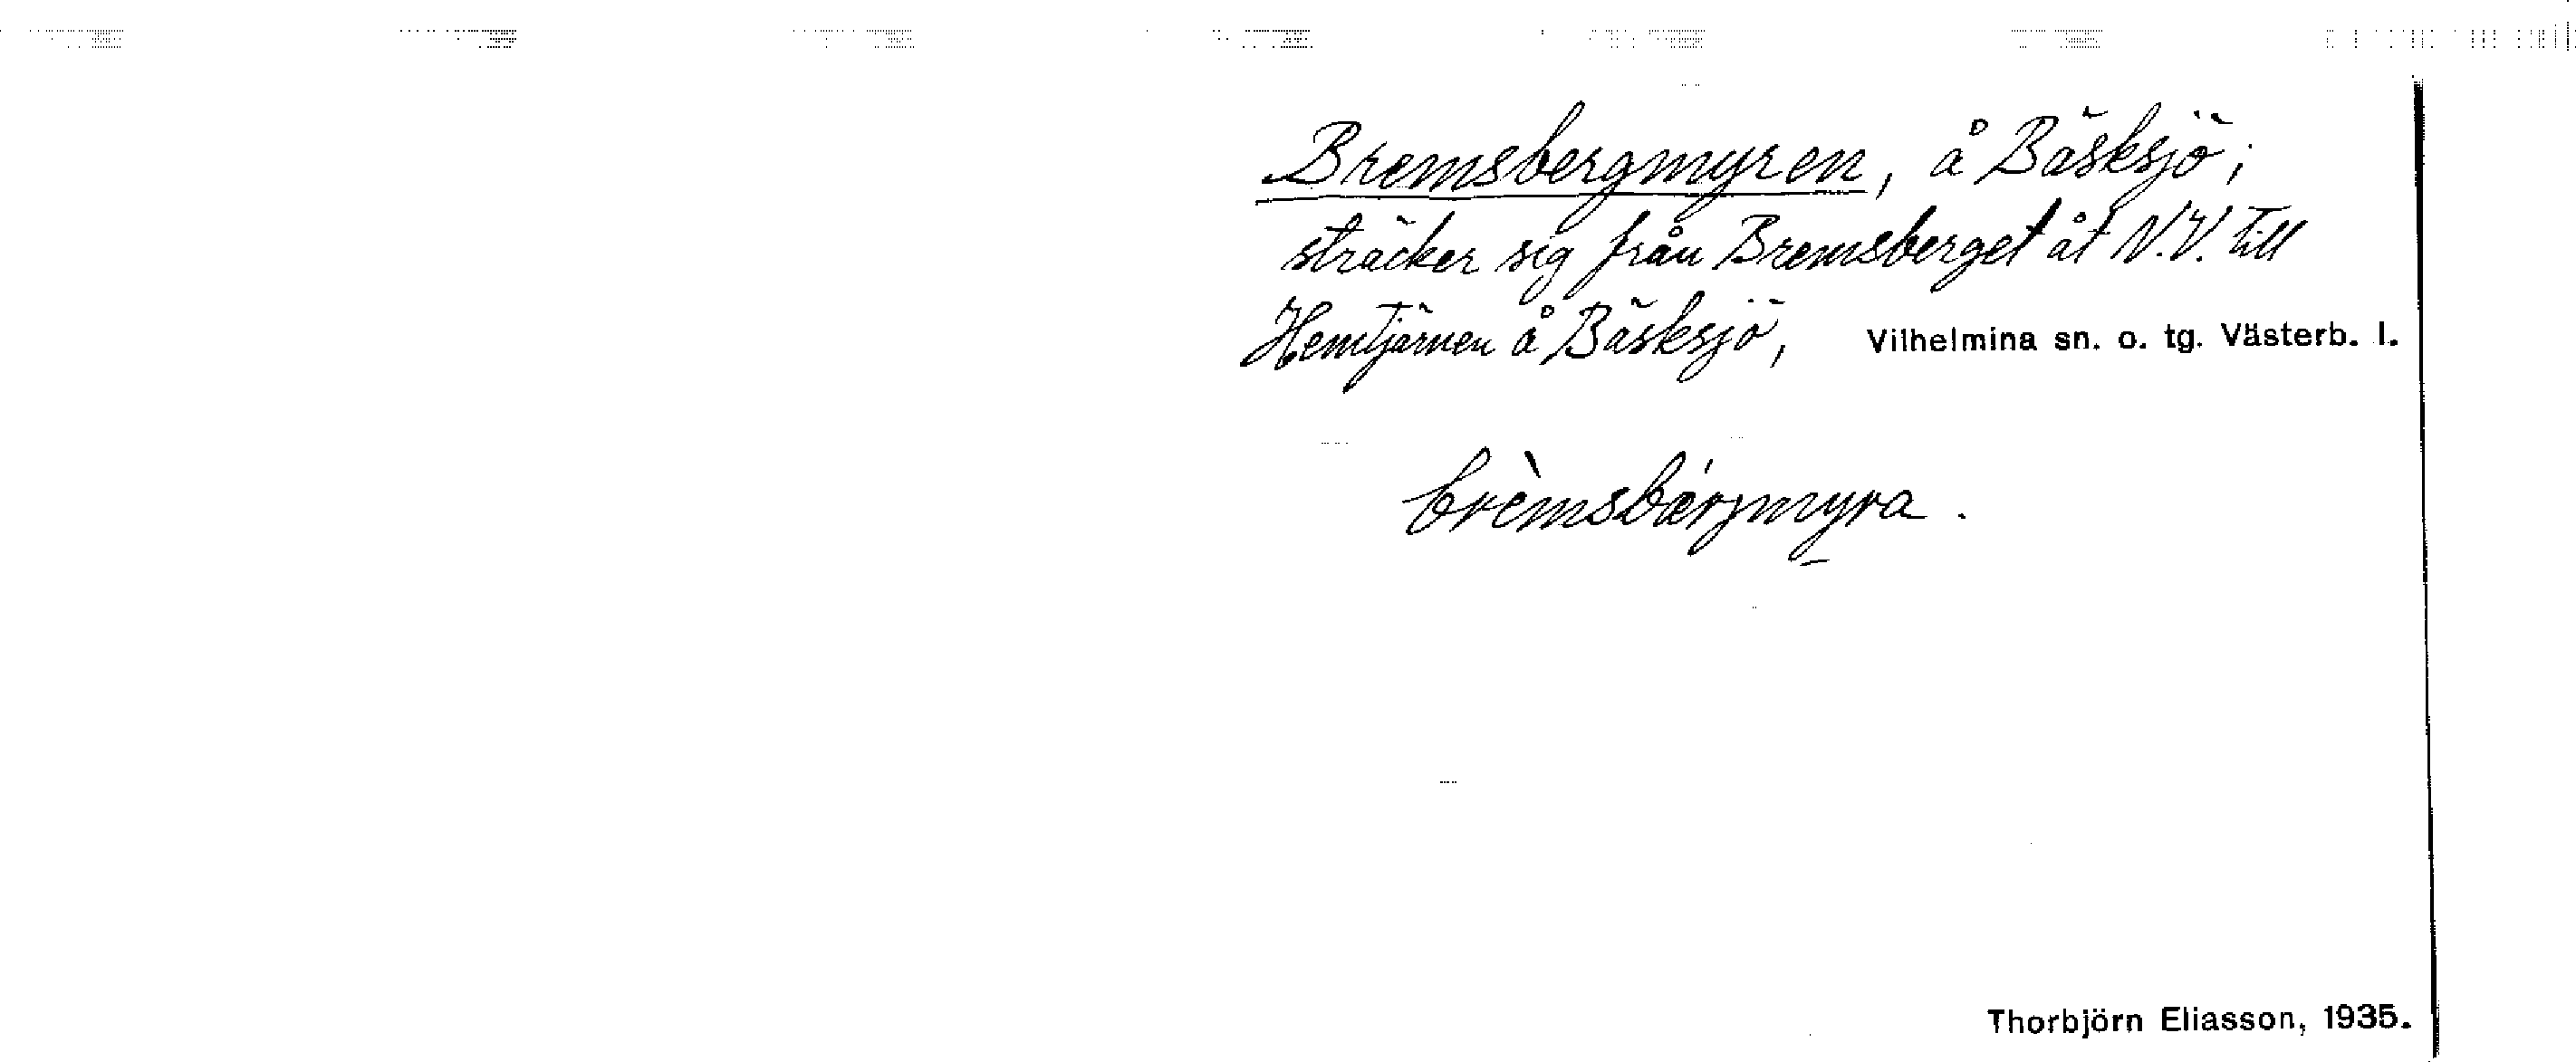 Bremsbergmyren, å Bäsksjö;
sträcker sig från Bremsberget åt N.V. till
Hemtjärnen å Bäsksjö, Vilhelmina sn. o. tg. Västerb. l.
brèmsbærjmyra.
Thorbjörn Eliasson, 1935.